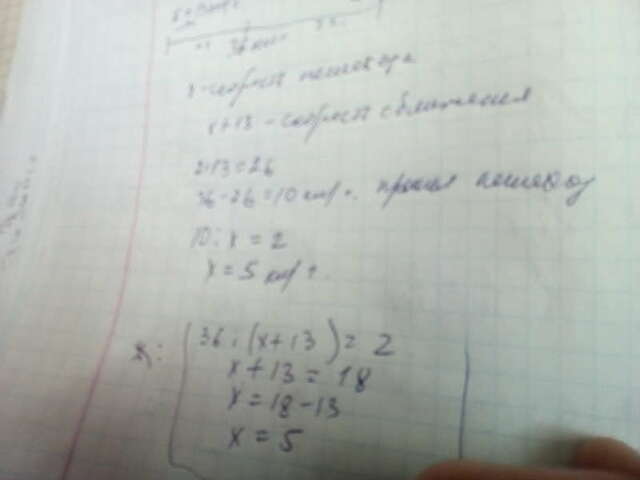 36 км
x - скорость пешехода
x+13 - скорость сближения
2·13=26
36-26=10 км/ч. прошел пешеход
10:x=2
x=5 км/ч.
36:(x+13)=2
x+13=18
x=18-13
x=5